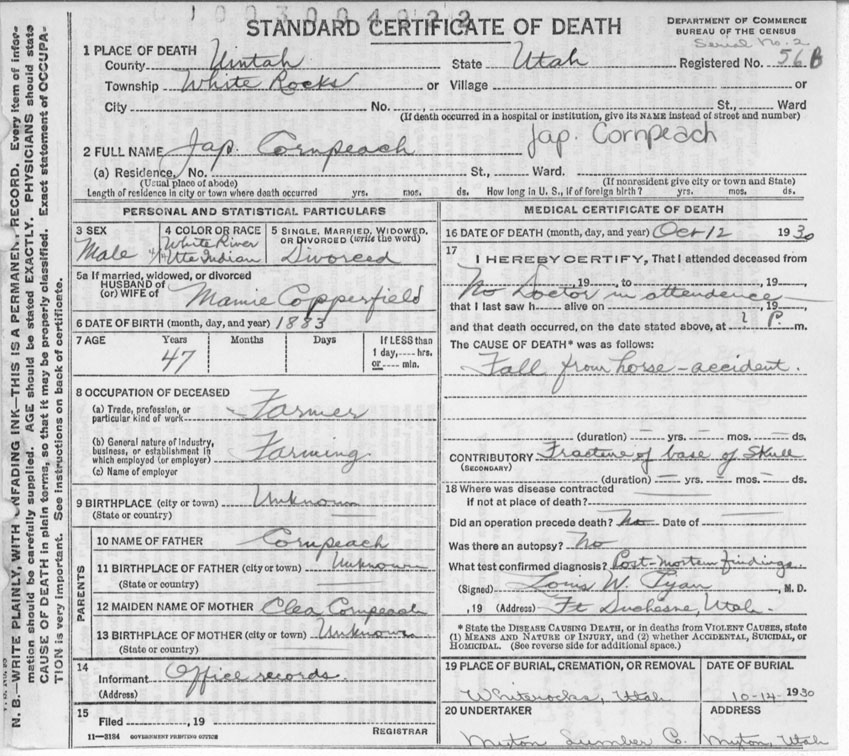 1003004023
STANDARD CERTIFICATE OF DEATH
DEPARTMENT OF COMMERCE
BUREAU OF THE CENSUS
Serial No. 2
1 PLACE OF DEATH
County Uintah State Utah Registered No. 56 B
Township White Rocks or Village or
City No. St., Ward
(If death occurred in a hospital or institution, give its NAME instead of street and number)
2 FULL NAME Jap. Cornpeach Jap. Cornpeach
(a) Residence, No. St., Ward.
(Usual place of abode) (If nonresident give city or town and State)
Length of residence in city or town where death occurred yrs. mos. ds. How long in U. S., if of foreign birth? yrs. mos. ds.
PERSONAL AND STATISTICAL PARTICULARS
3 SEX 4 COLOR OR RACE 5 SINGLE, MARRIED, WIDOWED, OR DIVORCED (write the word)
Male 4/4 White River Ute Indian Divorced
5a If married, widowed, or divorced
HUSBAND of
(or) WIFE of Mamie Copperfield
6 DATE OF BIRTH (month, day, and year) 1883
7 AGE Years Months Days If LESS than
47 1 day, hrs.
or min.
8 OCCUPATION OF DECEASED
(a) Trade, profession, or
particular kind of work Farmer
(b) General nature of industry,
business, or establishment in
which employed (or employer) Farming
(c) Name of employer
9 BIRTHPLACE (city or town) Unknown
(State or country)
PARENTS
10 NAME OF FATHER Cornpeach
11 BIRTHPLACE OF FATHER (city or town) Unknown
(State or country)
12 MAIDEN NAME OF MOTHER Clea Cornpeach
13 BIRTHPLACE OF MOTHER (city or town) Unknown
(State or country)
14
Informant Office records.
(Address)
15
Filed , 19
REGISTRAR
11—3184 GOVERNMENT PRINTING OFFICE
MEDICAL CERTIFICATE OF DEATH
16 DATE OF DEATH (month, day, and year) Oct 12 1930
17
I HEREBY CERTIFY, That I attended deceased from
, 19 , to , 19 ,
No Doctor in attendence
that I last saw h alive on , 19 ,
and that death occurred, on the date stated above, at ? P. m.
The CAUSE OF DEATH* was as follows:
Fall from horse - accident.
(duration) yrs. mos. ds.
CONTRIBUTORY Fracture of base of Skull
(SECONDARY)
(duration) yrs. mos. ds.
18 Where was disease contracted
if not at place of death?
Did an operation precede death? No Date of
Was there an autopsy? No
What test confirmed diagnosis? Post-Mortem findings.
(Signed) Louis W. , M. D.
, 19 (Address) Ft Duchesne, Utah.
* State the DISEASE CAUSING DEATH, or in deaths from VIOLENT CAUSES, state
(1) MEANS AND NATURE OF INJURY, and (2) whether ACCIDENTAL, SUICIDAL, or
HOMICIDAL. (See reverse side for additional space.)
19 PLACE OF BURIAL, CREMATION, OR REMOVAL DATE OF BURIAL
Whiterocks, Utah 10-14-1930
20 UNDERTAKER ADDRESS
Myton Lumber Co. Myton, Utah
N. B.—WRITE PLAINLY, WITH UNFADING INK—THIS IS A PERMANENT RECORD. Every item of infor-
mation should be carefully supplied. AGE should be stated EXACTLY. PHYSICIANS should state
CAUSE OF DEATH in plain terms, so that it may be properly classified. Exact statement of OCCUPA-
TION is very important. See instructions on back of certificate.